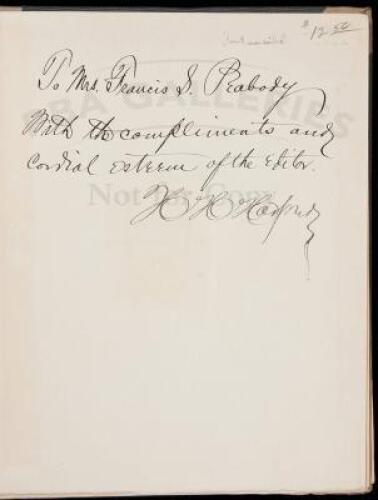 $12.50
To Mrs. Francis S. Peabody
With the compliments and
Cordial esteem of the Editor.
H H
PBA GALLERIES
Not for Copy